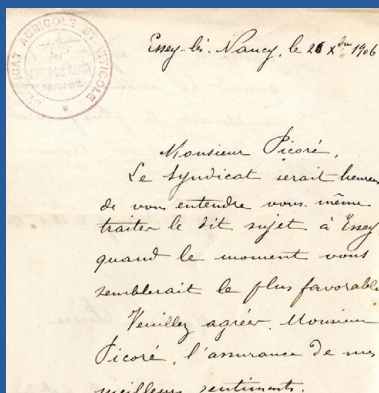 SYNDICAT AGRICOLE ET VITICOLE
Essey-lès-Nancy, le 26 Xbre 1906
Monsieur Picoré,
Le Syndicat serait heureux
de vous entendre vous même
traiter le dit sujet à Essey
quand le moment vous
semblerait le plus favorable
Veuillez agréer, Monsieur
Picoré, l'assurance de mes
meilleurs sentiments.